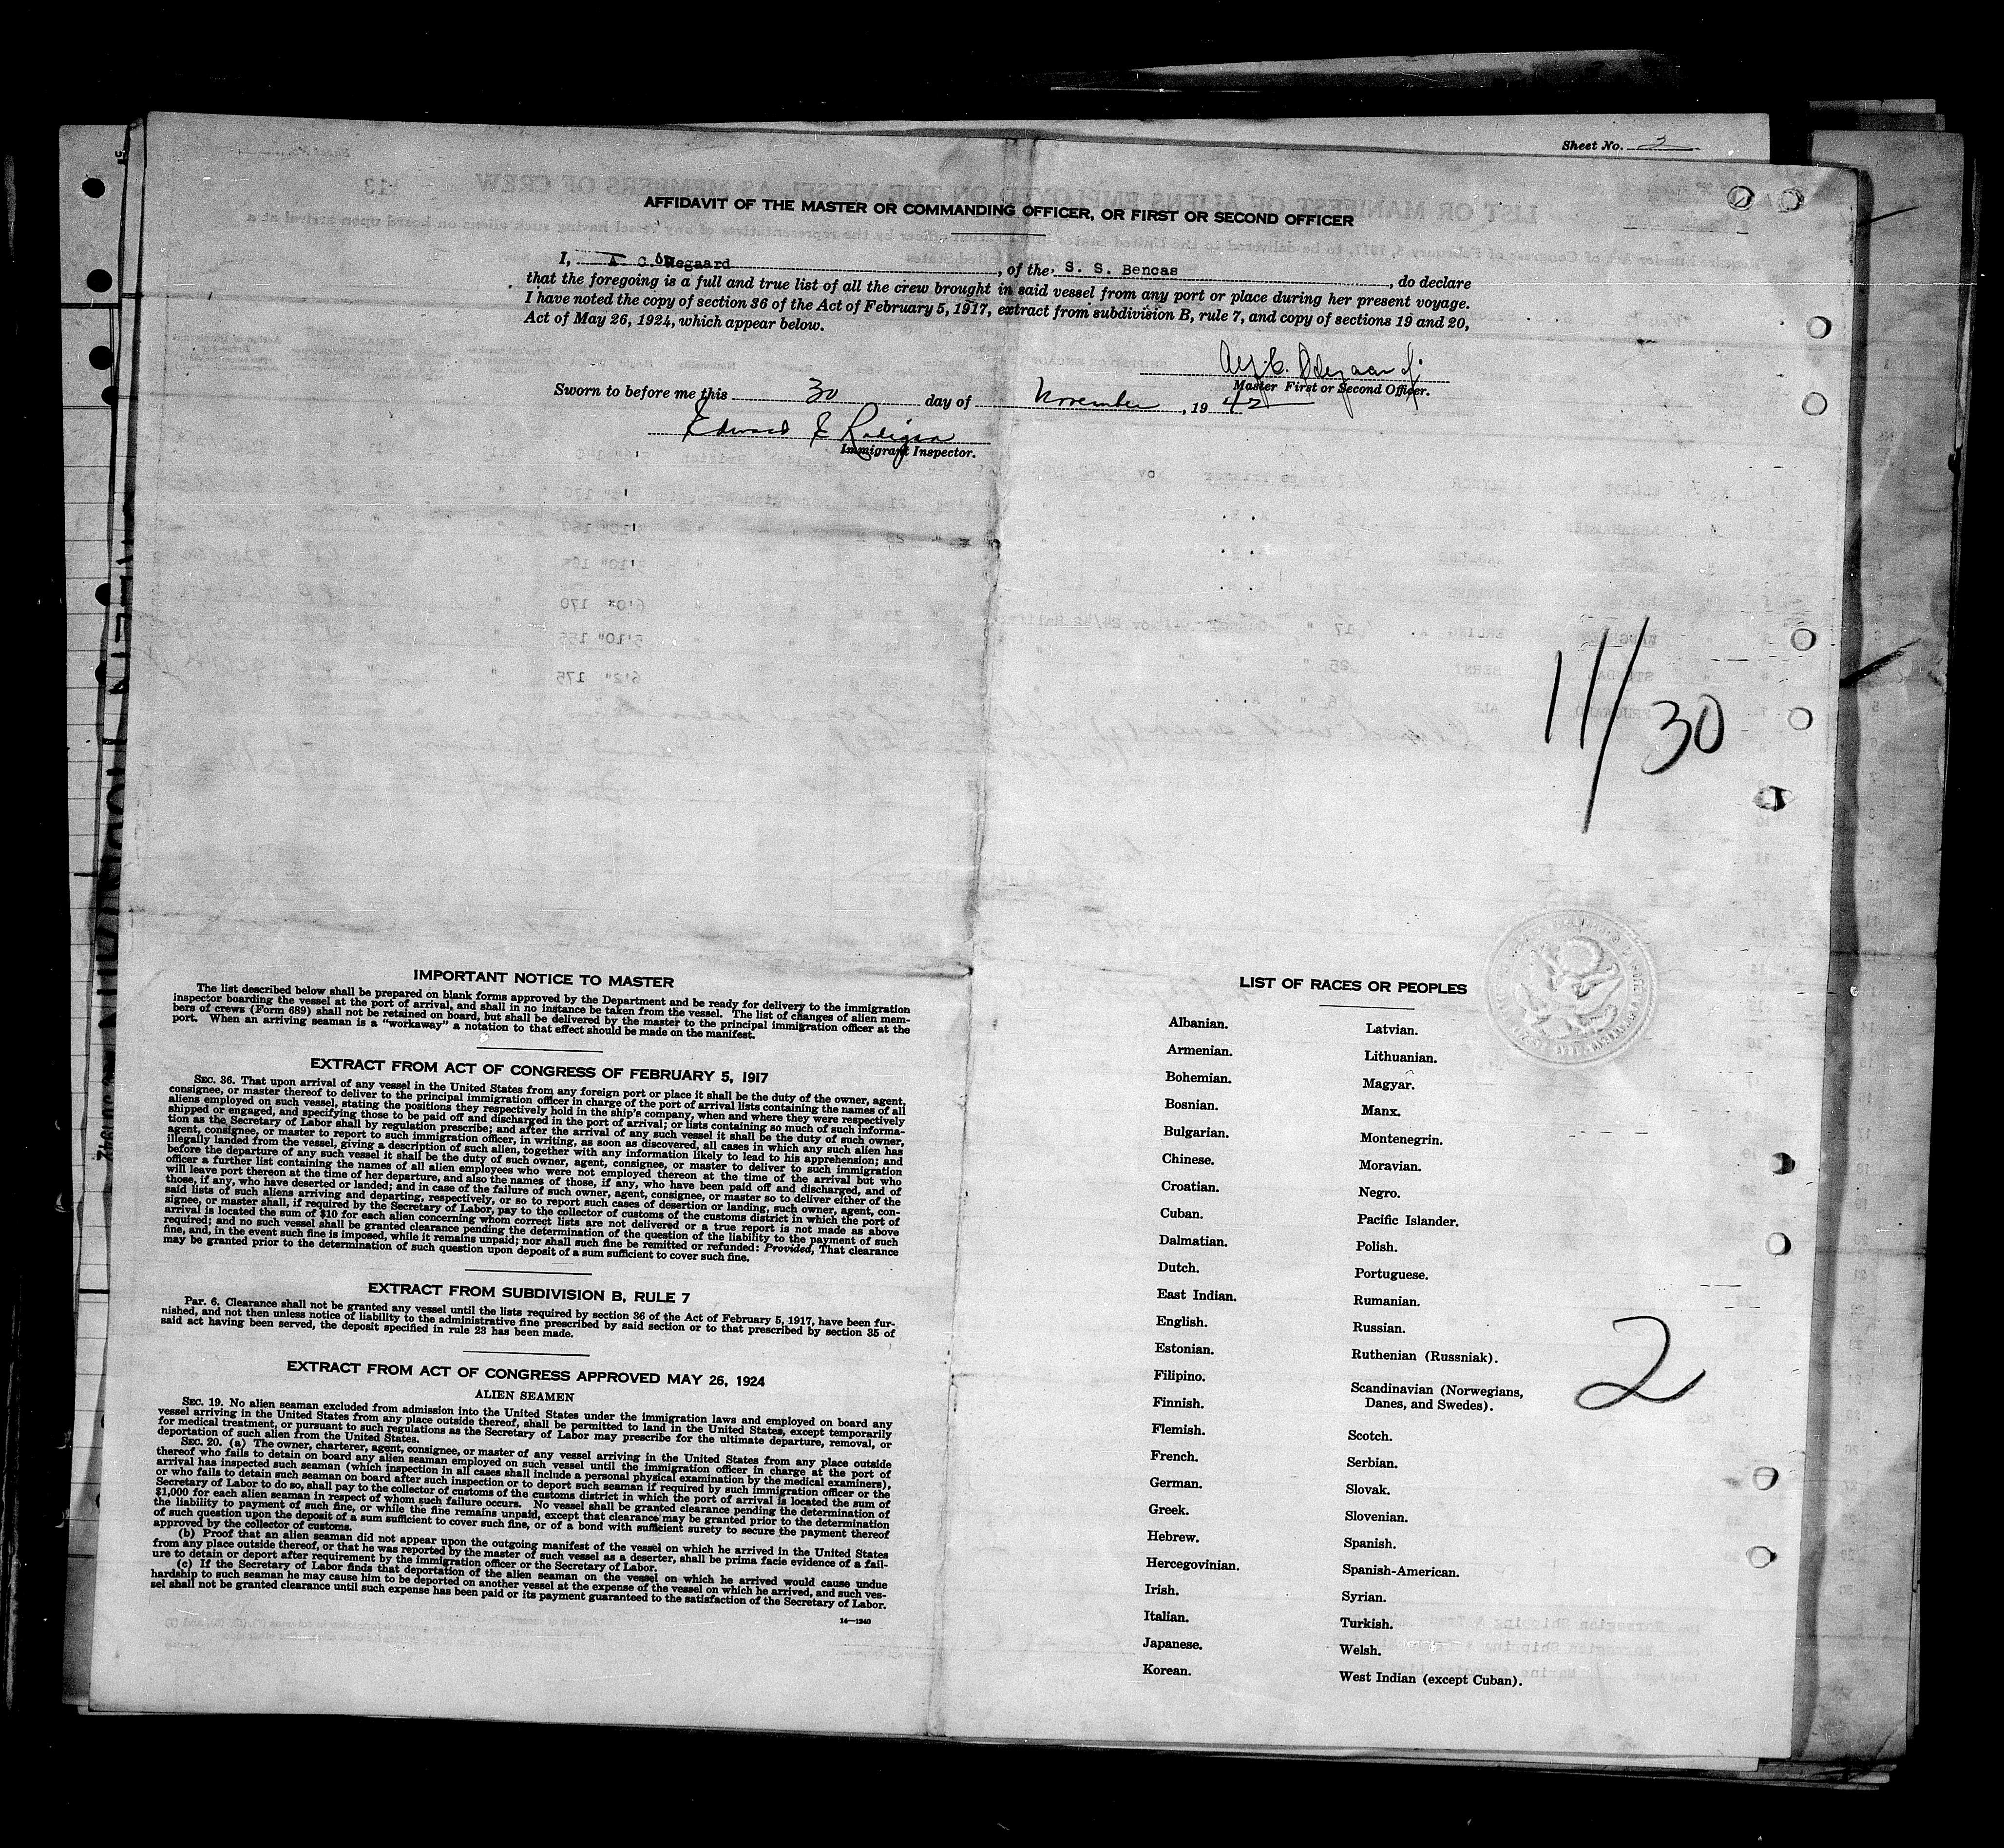 Sheet No.
AFFIDAVIT OF THE MASTER OR COMMANDING OFFICER, OR FIRST OR SECOND OFFICER
I, A C. Ødegaard, of the S. S. Bencas, do declare
that the foregoing is a full and true list of all the crew brought in said vessel from any port or place during her present voyage.
I have noted the copy of section 36 of the Act of February 5, 1917, extract from subdivision B, rule 7, and copy of sections 19 and 20,
Act of May 26, 1924, which appear below.
Master First or Second Officer.
Sworn to before me this 30 day of November, 19 42
Edward
Immigrant Inspector.
11/30
IMPORTANT NOTICE TO MASTER
The list described below shall be prepared on blank forms approved by the Department and be ready for delivery to the immigration
inspector boarding the vessel at the port of arrival, and shall in no instance be taken from the vessel. The list of changes of alien mem-
bers of crews (Form 689) shall not be retained on board, but shall be delivered by the master to the principal immigration officer at the
port. When an arriving seaman is a "workaway" a notation to that effect should be made on the manifest.
EXTRACT FROM ACT OF CONGRESS OF FEBRUARY 5, 1917
SEC. 36. That upon arrival of any vessel in the United States from any foreign port or place it shall be the duty of the owner, agent,
consignee, or master thereof to deliver to the principal immigration officer in charge of the port of arrival lists containing the names of all
aliens employed on such vessel, stating the positions they respectively hold in the ship's company, when and where they were respectively
shipped or engaged, and specifying those to be paid off and discharged in the port of arrival; or lists containing so much of such informa-
tion as the Secretary of Labor shall by regulation prescribe; and after the arrival of any such vessel it shall be the duty of such owner,
agent, consignee, or master to report to such immigration officer, in writing, as soon as discovered, all cases in which any such alien has
illegally landed from the vessel, giving a description of such alien, together with any information likely to lead to his apprehension; and
before the departure of any such vessel it shall be the duty of such owner, agent, consignee, or master to deliver to such immigration
officer a further list containing the names of all alien employees who were not employed thereon at the time of the arrival but who
will leave port thereon at the time of her departure, and also the names of those, if any, who have been paid off and discharged, and of
those, if any, who have deserted or landed; and in case of the failure of such owner, agent, consignee, or master so to deliver either of the
said lists of such aliens arriving and departing, respectively, or so to report such cases of desertion or landing, such owner, agent, con-
signee, or master shall, if required by the Secretary of Labor, pay to the collector of customs of the customs district in which the port of
arrival is located the sum of $10 for each alien concerning whom correct lists are not delivered or a true report is not made as above
required; and no such vessel shall be granted clearance pending the determination of the question of the liability to the payment of such
fine, and, in the event such fine is imposed, while it remains unpaid; nor shall such fine be remitted or refunded: Provided, That clearance
may be granted prior to the determination of such question upon deposit of a sum sufficient to cover such fine.
EXTRACT FROM SUBDIVISION B, RULE 7
Par. 6. Clearance shall not be granted any vessel until the lists required by section 36 of the Act of February 5, 1917, have been fur-
nished, and not then unless notice of liability to the administrative fine prescribed by said section or to that prescribed by section 35 of
said act having been served, the deposit specified in rule 23 has been made.
EXTRACT FROM ACT OF CONGRESS APPROVED MAY 26, 1924
ALIEN SEAMEN
SEC. 19. No alien seaman excluded from admission into the United States under the immigration laws and employed on board any
vessel arriving in the United States from any place outside thereof, shall be permitted to land in the United States, except temporarily
for medical treatment, or pursuant to such regulations as the Secretary of Labor may prescribe for the ultimate departure, removal, or
deportation of such alien from the United States.
SEC. 20. (a) The owner, charterer, agent, consignee, or master of any vessel arriving in the United States from any place outside
thereof who fails to detain on board any alien seaman employed on such vessel until the immigration officer in charge at the port of
arrival has inspected such seaman (which inspection in all cases shall include a personal physical examination by the medical examiners),
or who fails to detain such seaman on board after such inspection or to deport such seaman if required by such immigration officer or the
Secretary of Labor to do so, shall pay to the collector of customs of the customs district in which the port of arrival is located the sum of
$1,000 for each alien seaman in respect of whom such failure occurs. No vessel shall be granted clearance pending the determination of
the liability to payment of such fine, or while the fine remains unpaid, except that clearance may be granted prior to the determination
of such question upon the deposit of a sum sufficient to cover such fine, or of a bond with sufficient surety to secure the payment thereof
approved by the collector of customs.
(b) Proof that an alien seaman did not appear upon the outgoing manifest of the vessel on which he arrived in the United States
from any place outside thereof, or that he was reported by the master of such vessel as a deserter, shall be prima facie evidence of a fail-
ure to detain or deport after requirement by the immigration officer or the Secretary of Labor.
(c) If the Secretary of Labor finds that deportation of the alien seaman on the vessel on which he arrived would cause undue
hardship to such seaman he may cause him to be deported on another vessel at the expense of the vessel on which he arrived, and such ves-
sel shall not be granted clearance until such expense has been paid or its payment guaranteed to the satisfaction of the Secretary of Labor.
14—1240
LIST OF RACES OR PEOPLES
Albanian.
Armenian.
Bohemian.
Bosnian.
Bulgarian.
Chinese.
Croatian.
Cuban.
Dalmatian.
Dutch.
East Indian.
English.
Estonian.
Filipino.
Finnish.
Flemish.
French.
German.
Greek.
Hebrew.
Hercegovinian.
Irish.
Italian.
Japanese.
Korean.
Latvian.
Lithuanian.
Magyar.
Manx.
Montenegrin.
Moravian.
Negro.
Pacific Islander.
Polish.
Portuguese.
Rumanian.
Russian.
Ruthenian (Russniak).
Scandinavian (Norwegians,
Danes, and Swedes).
Scotch.
Serbian.
Slovak.
Slovenian.
Spanish.
Spanish-American.
Syrian.
Turkish.
Welsh.
West Indian (except Cuban).
2